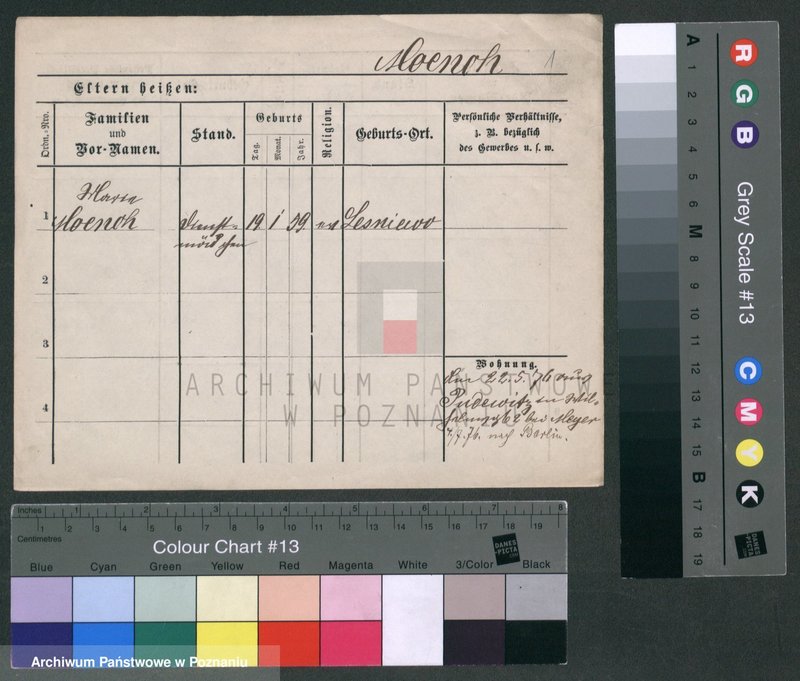 Moench 1
Eltern heißen:
Ordn.-Nro.
Familien
und
Vor-Namen.
Stand.
Geburts
Tag.
Monat.
Jahr.
Religion.
Geburts-Ort.
Persönliche Verhältnisse,
z. B. bezüglich
des Gewerbes u. s. w.
Marie
1 Moench Dienst= 19 1 59 ev Lesniewo
mädchen
2
3
4
Wohnung.
den 22.5.76 aus
Pudewitz
bei Meyer
nach Berlin.
ARCHIWUM PAŃSTWOWE
W POZNA
Inches 1 2 3 4 5 6 7 8
1 2 3 4 5 6 7 8 9 10 11 12 13 14 15 16 17 18 19
Centimetres
Colour Chart #13
DANES
-PICTA
.COM
Blue Cyan Green Yellow Red Magenta White 3/Color Black
Archiwum Państwowe w Poznaniu
A 1 2 3 4 5 6 M 8 9 10 11 12 13 14 15 B 17 18 19
R G B
Grey Scale #13
C M Y K
DANES
-PICTA
.COM